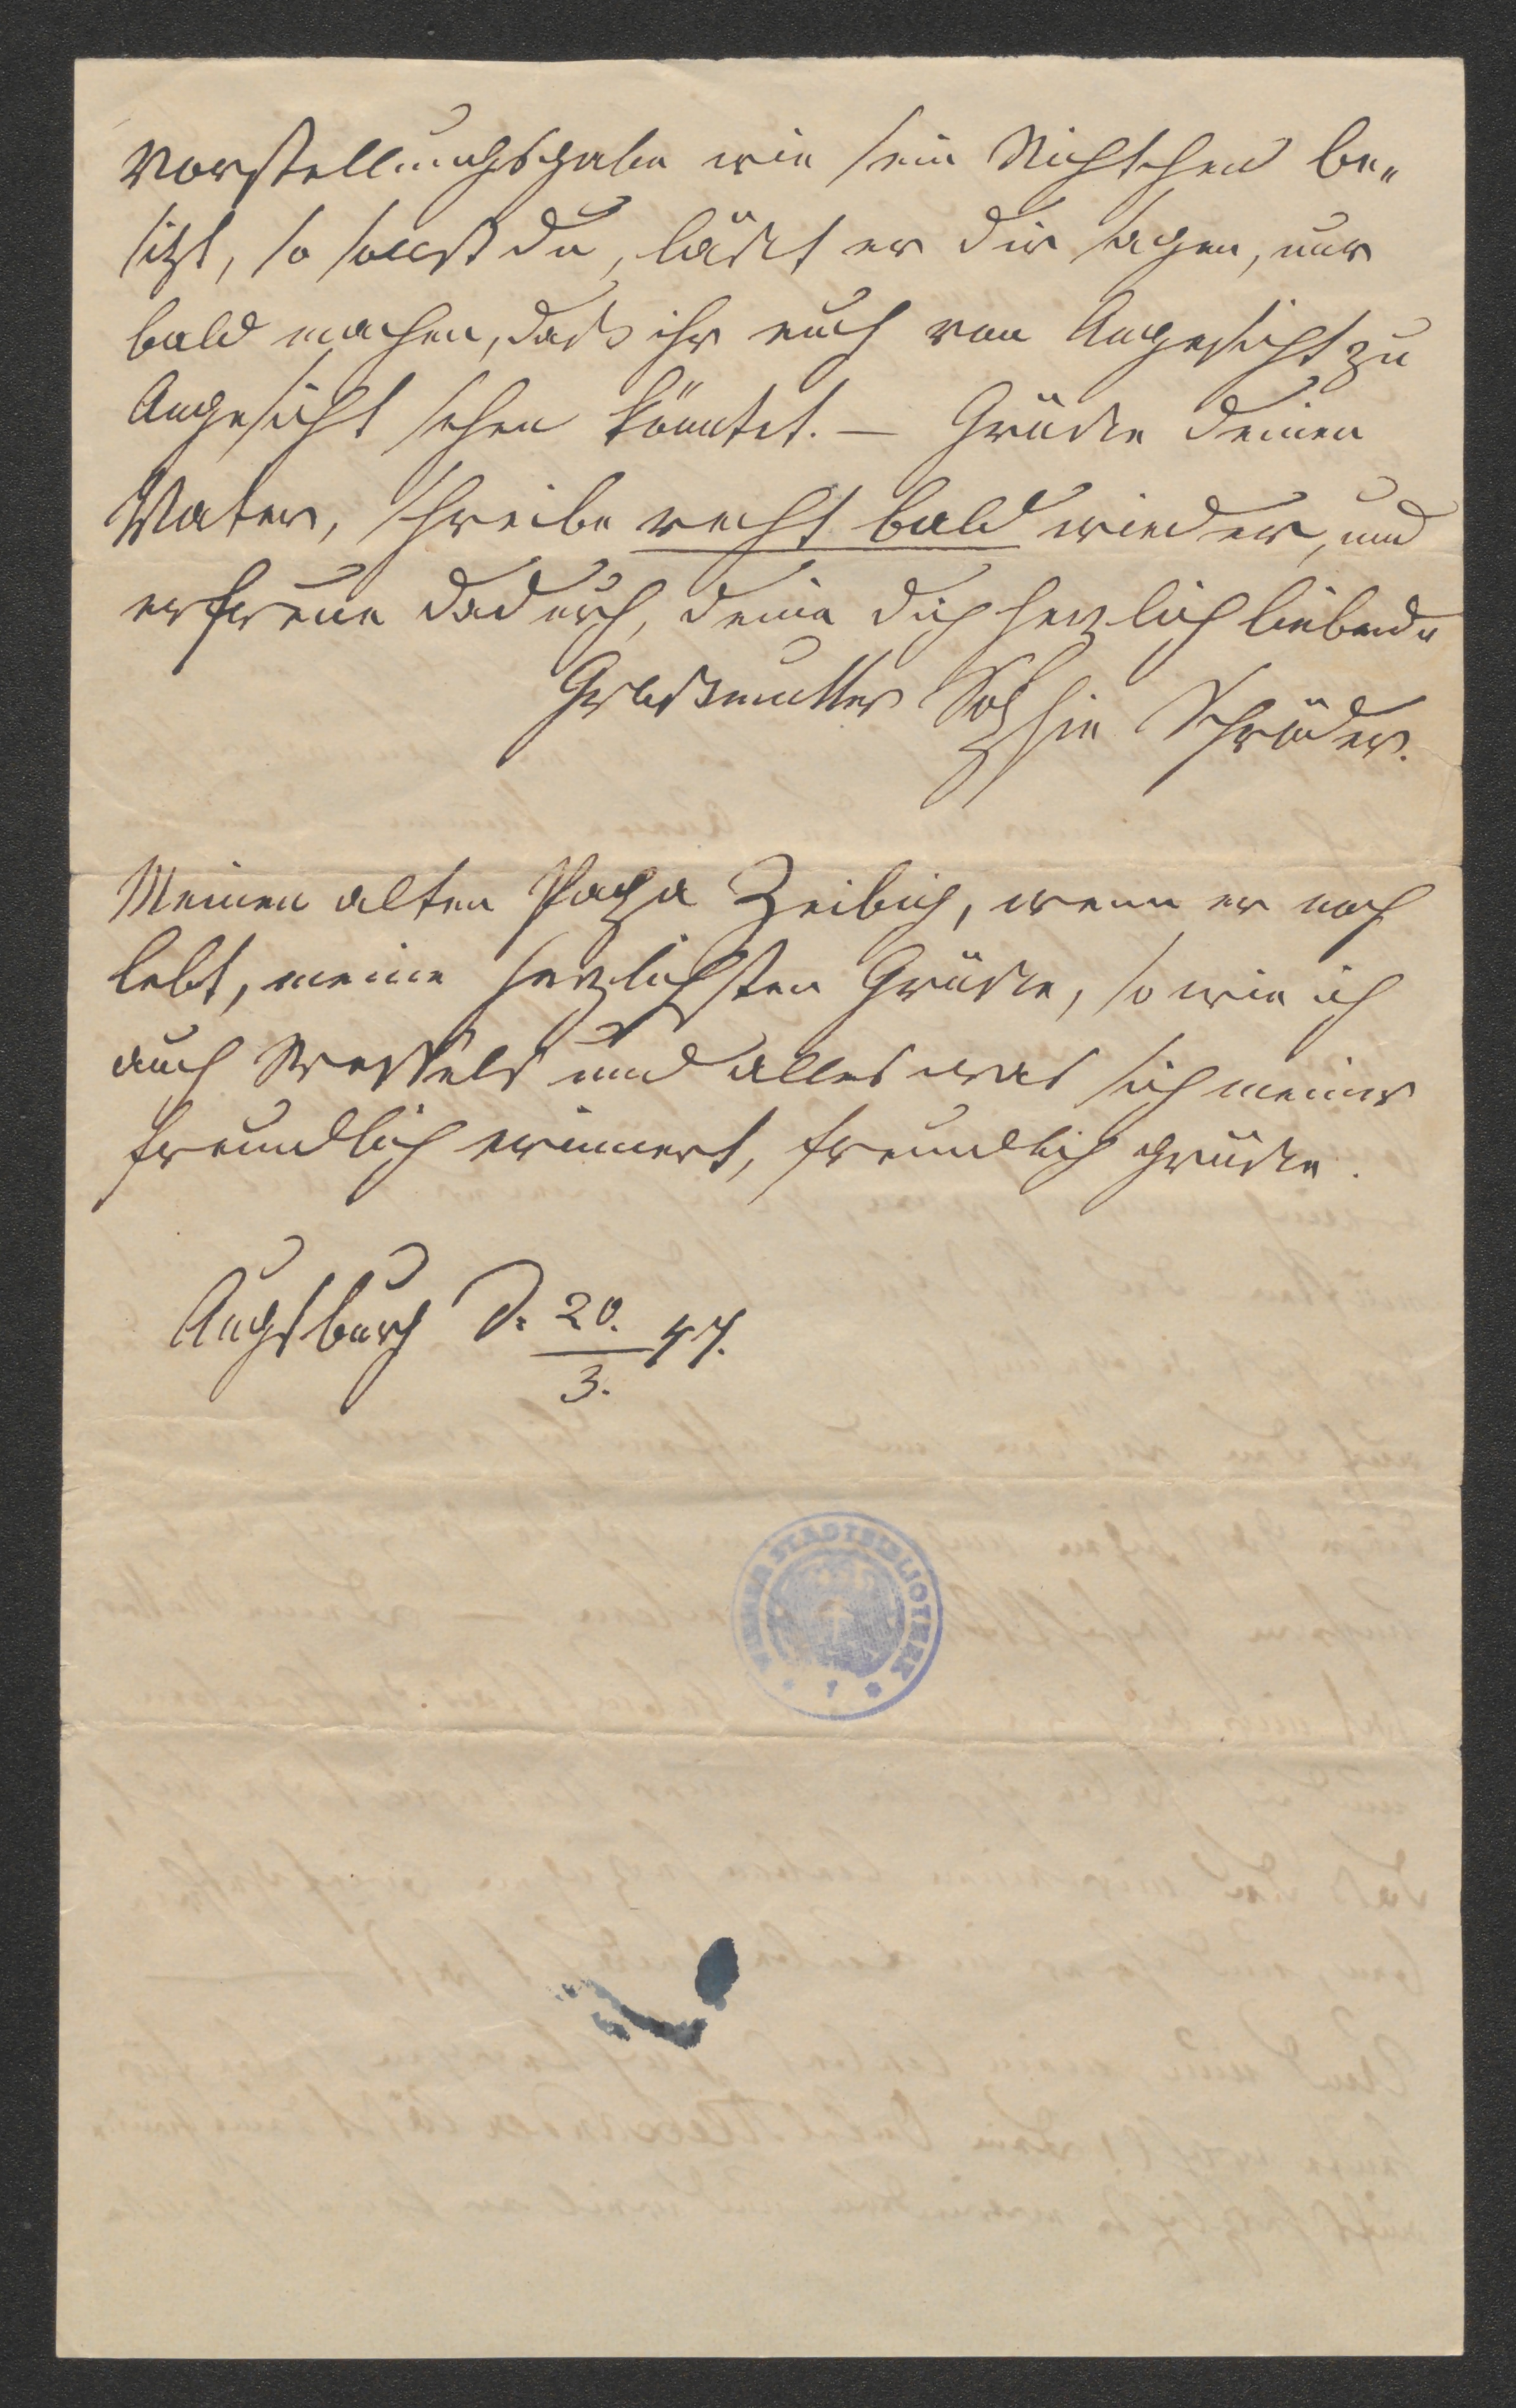 Vorstellungsgabe wie sein Nichtchen be„
sitzt, so sollst du, läßt er dir sagen, nur
bald machen, daß ihr euch von Angesicht zu
Angesicht sehen könntet. — Grüße deinen
Vater, schreibe recht bald wieder, und
erfreue dadurch, deine dich herzlich liebende
Großmutter Sophie Schröder.
Meinen alten Papa Zeibig, wenn er noch
lebt, meine herzlichsten Grüße, so wie ich
auch und alles was sich meiner
freundlich erinnert, freundlich grüße.
Augsburg d. 20. 47.
3.
WIENER STADTBIBLIOTHEK